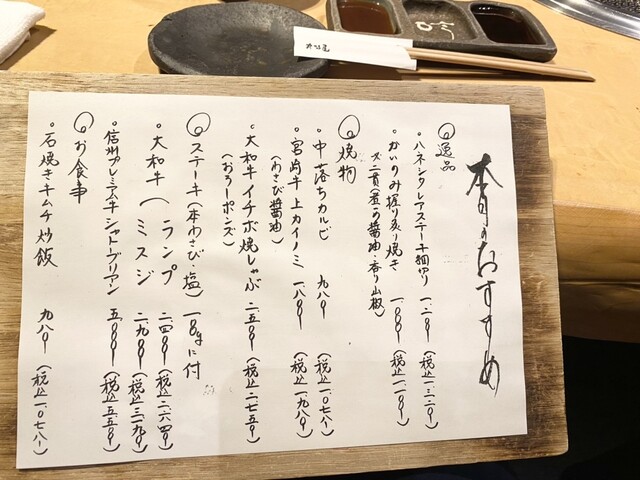 本日のおすすめ
◎逸品
・ハネシタレアステーキ細切り 一、二〇〇ー(税込一、三二〇ー)
・かいのみ握り炙り焼き 一、〇〇〇ー(税込一、一〇〇ー)
ズ二貫(煮つめ醤油・香り山椒)
◎焼物
・中落ちカルビ 九八〇ー(税込一、〇七八ー)
・宮崎牛 上カイノミ 一、八〇〇ー(税込一、九八〇ー)
(わさび醤油)
・大和牛 イチボ焼しゃぶ 二、五〇〇ー(税込二、七五〇ー)
(おろしポンズ)
◎ステーキ(本わさび・塩)一〇〇gに付
・大和牛(ランプ 二、四〇〇ー(税込二、六四〇ー)
(ミスジ 二、九〇〇ー(税込三、一九〇ー)
・信州プレミアム牛シャトーブリアン 五、〇〇〇ー(税込五、五〇〇ー)
◎お食事
・石焼きキムチ炒飯 九八〇ー(税込一、〇七八ー)